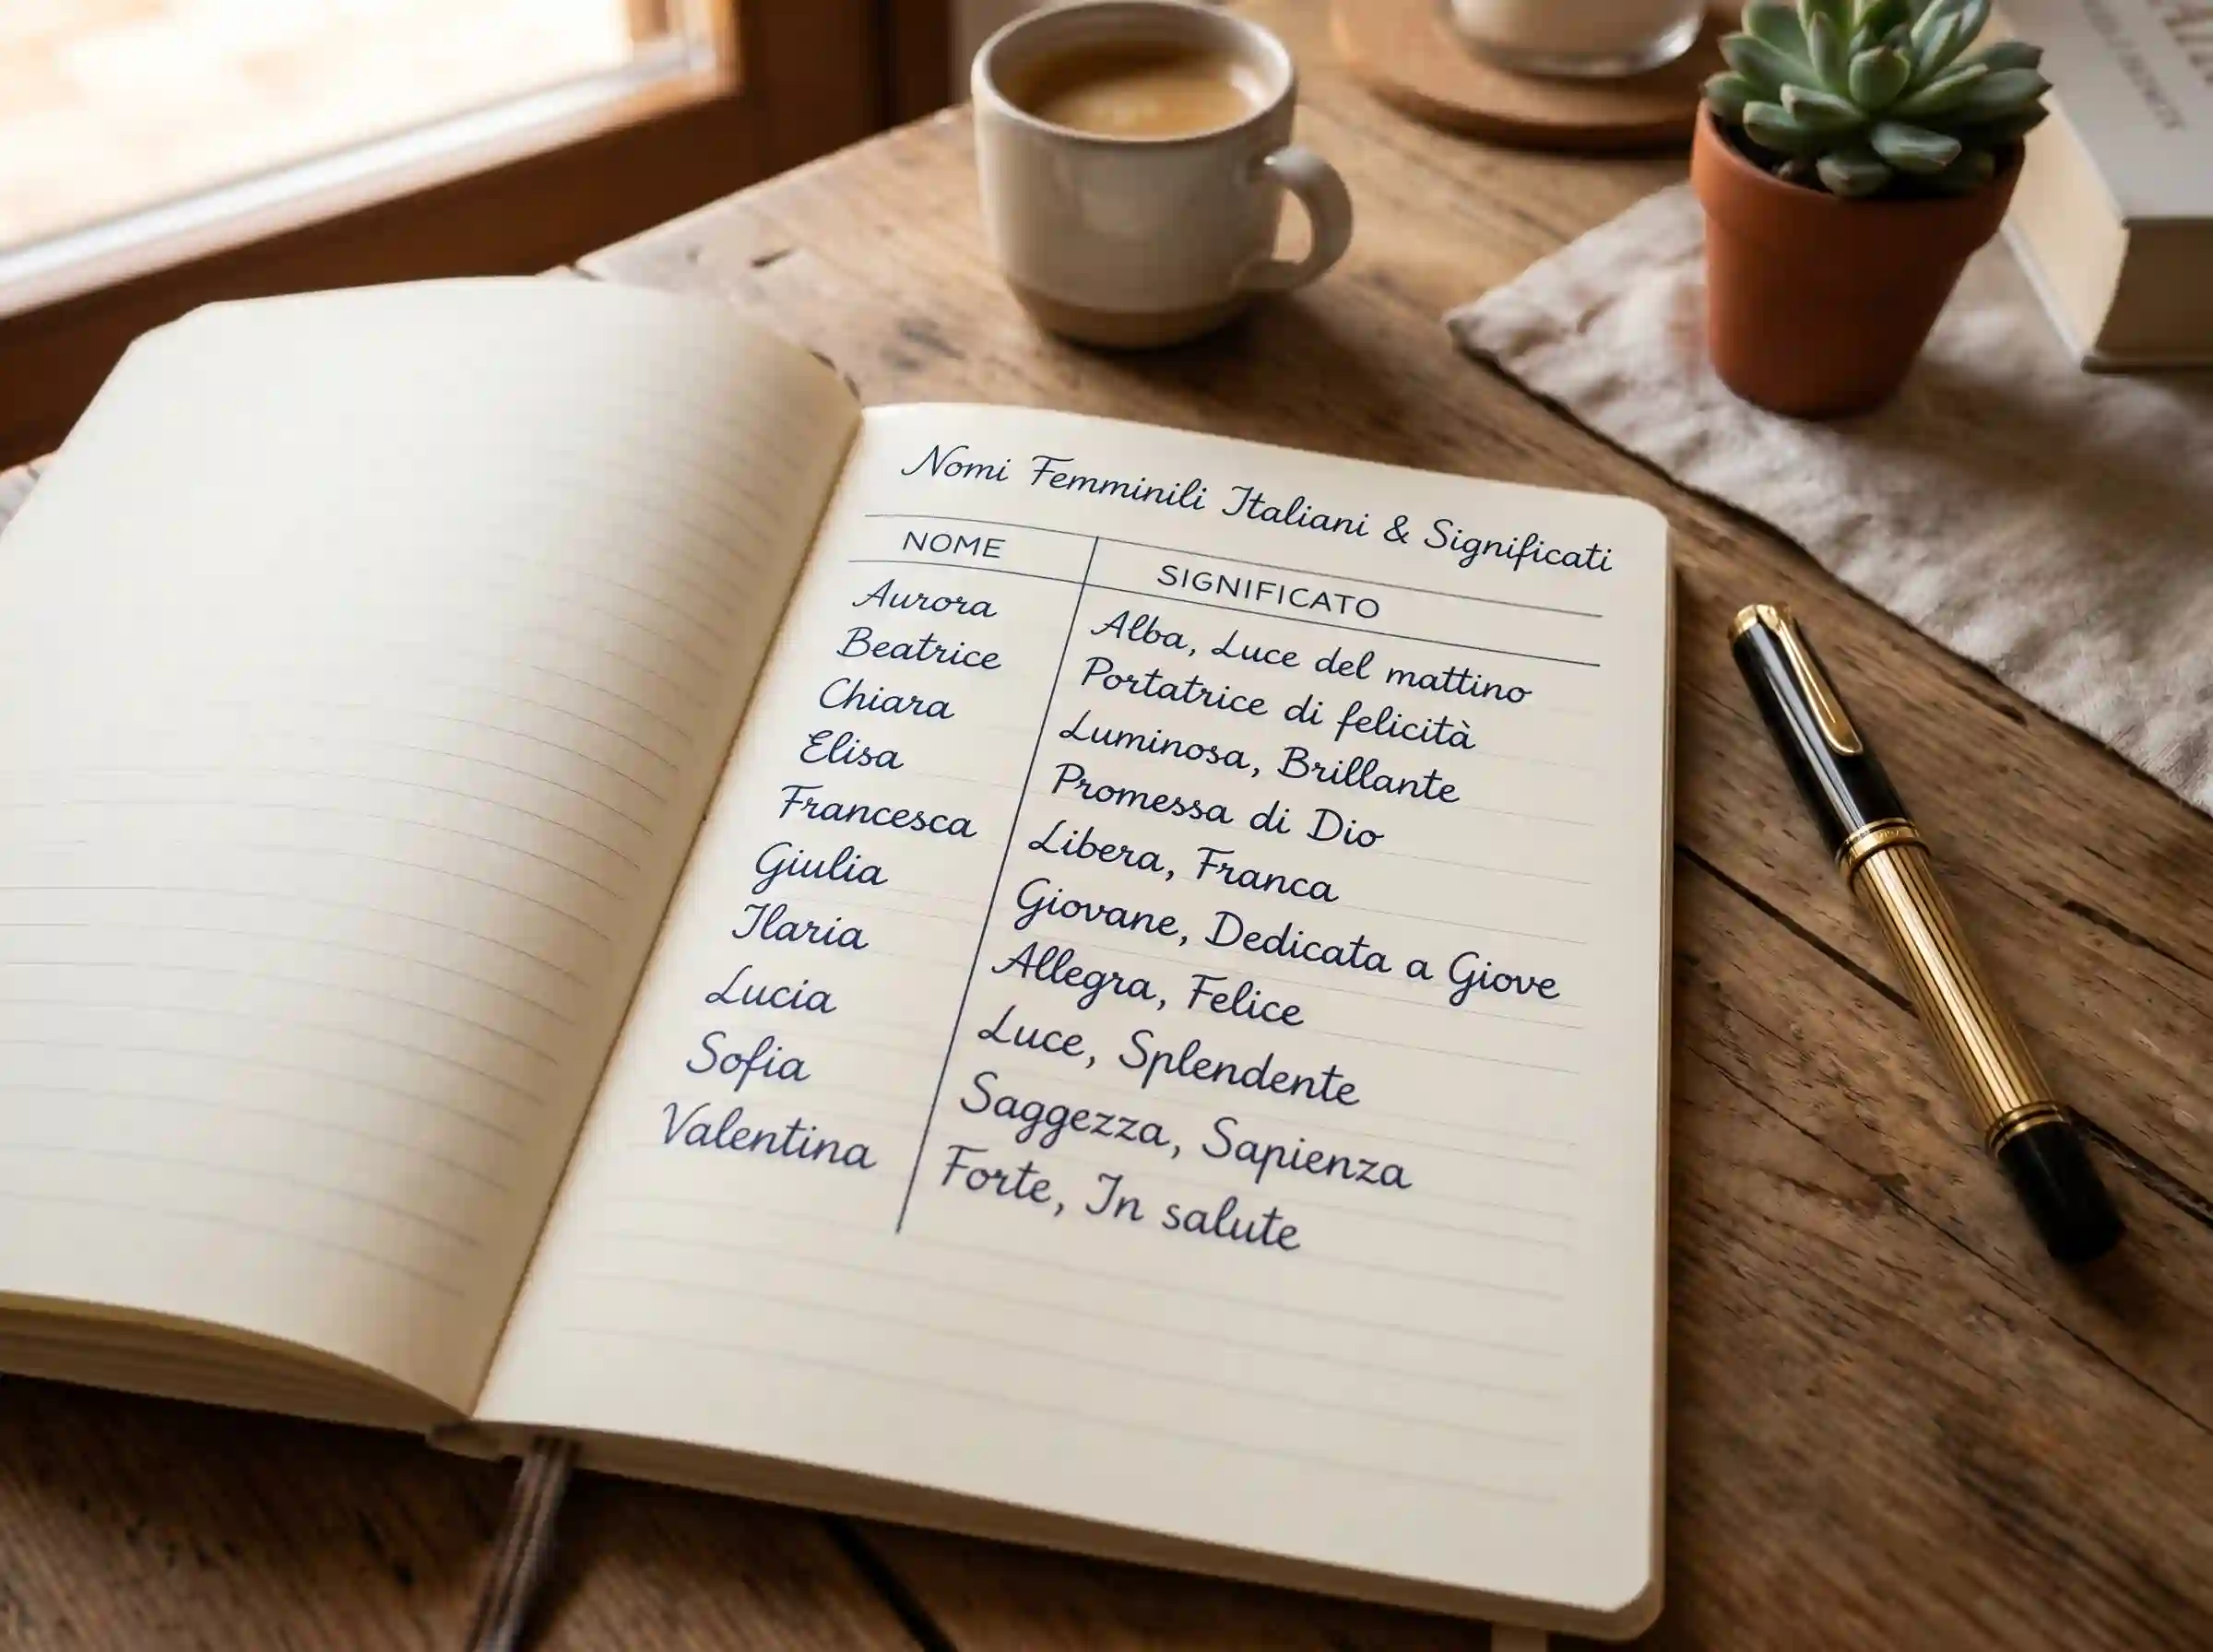 Nomi Femminili Italiani & Significati
NOME SIGNIFICATO
Aurora Alba, Luce del mattino
Beatrice Portatrice di felicità
Chiara Luminosa, Brillante
Elisa Promessa di Dio
Francesca Libera, Franca
Giulia Giovane, Dedicata a Giove
Ilaria Allegra, Felice
Lucia Luce, Splendente
Sofia Saggezza, Sapienza
Valentina Forte, In salute